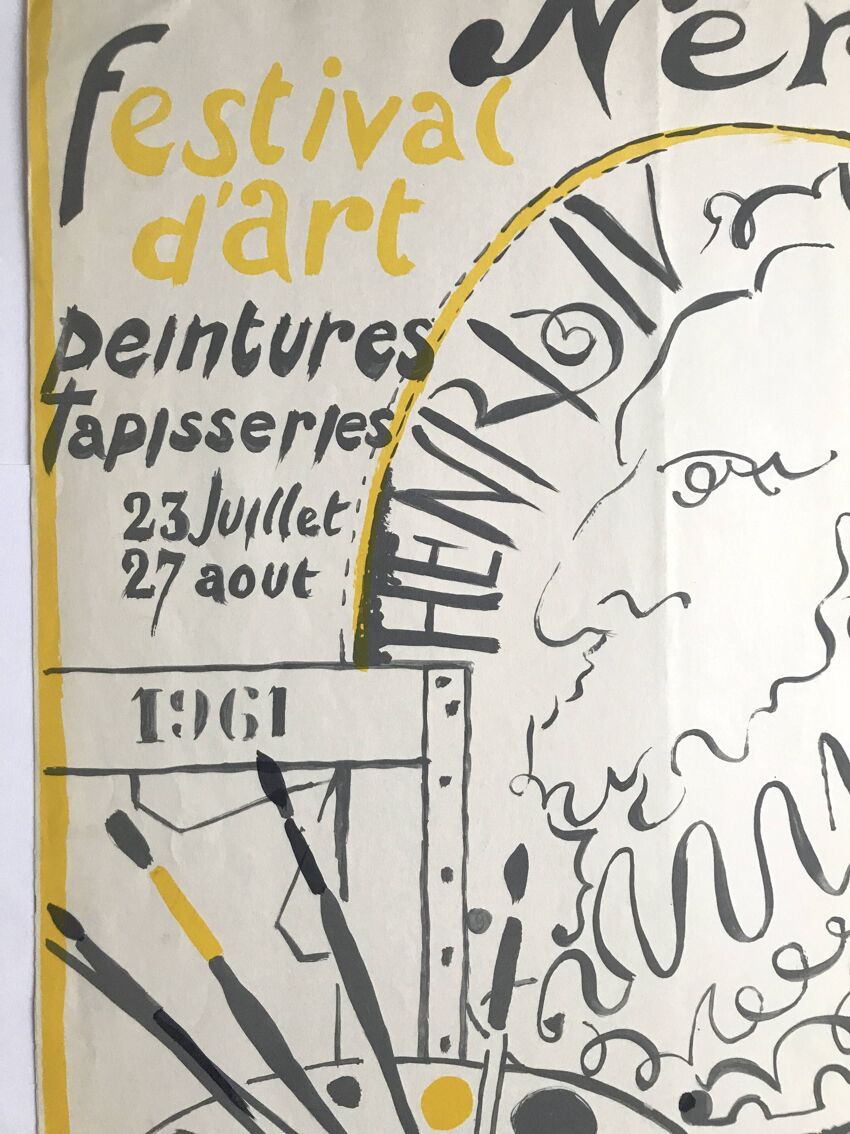 Nér
festival
d'art
peintures
Tapisseries
23 Juillet
27 aout
HENRI IV
1961